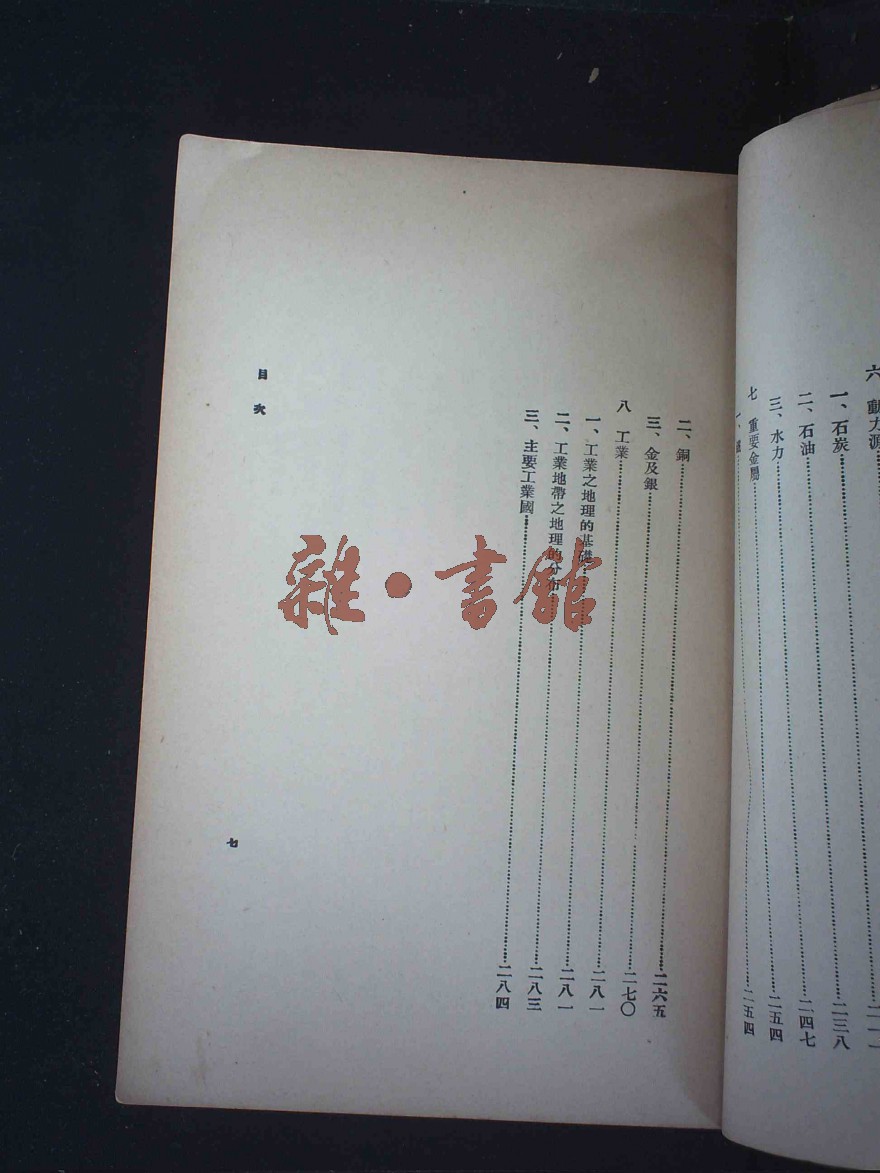 六 動力源
一、石炭……二一一
二、石油……二三八
三、水力……二四七
七 重要金屬……二五四
一、……二五四
二、銅……二六五
三、金及銀……二七〇
八 工業……二八一
一、工業之地理的基礎……二八一
二、工業地帶之地理的分布……二八三
三、主要工業國……二八四
目次
七
雜·書館